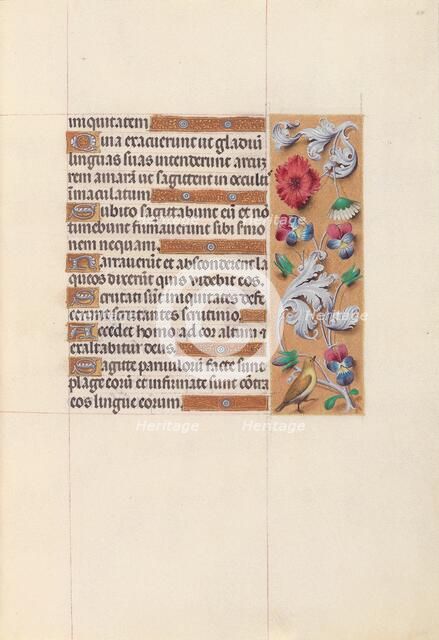 iniquitatem
Quia exacuerunt ut gladiū
linguas suas intenderunt arcū
rem amarā ut sagittent in occultis
inmaculatum
Subito sagittabunt eū et nō
timebunt firmauerunt sibi sermo
nem nequam
Narrauerūt et absconderent la
queos dixerūt quis videbit eos
Scrutati sūt iniquitates defe
cerunt scrutantes scrutinio
Accedet homo ad cor altum et
exaltabitur deus
Sagitte paruulorū facte sunt
plage eorū et infirmate sunt cōtra
eos lingue eorum
Heritage
Heritage
Heritage
Heritage
Heritage
Heritage